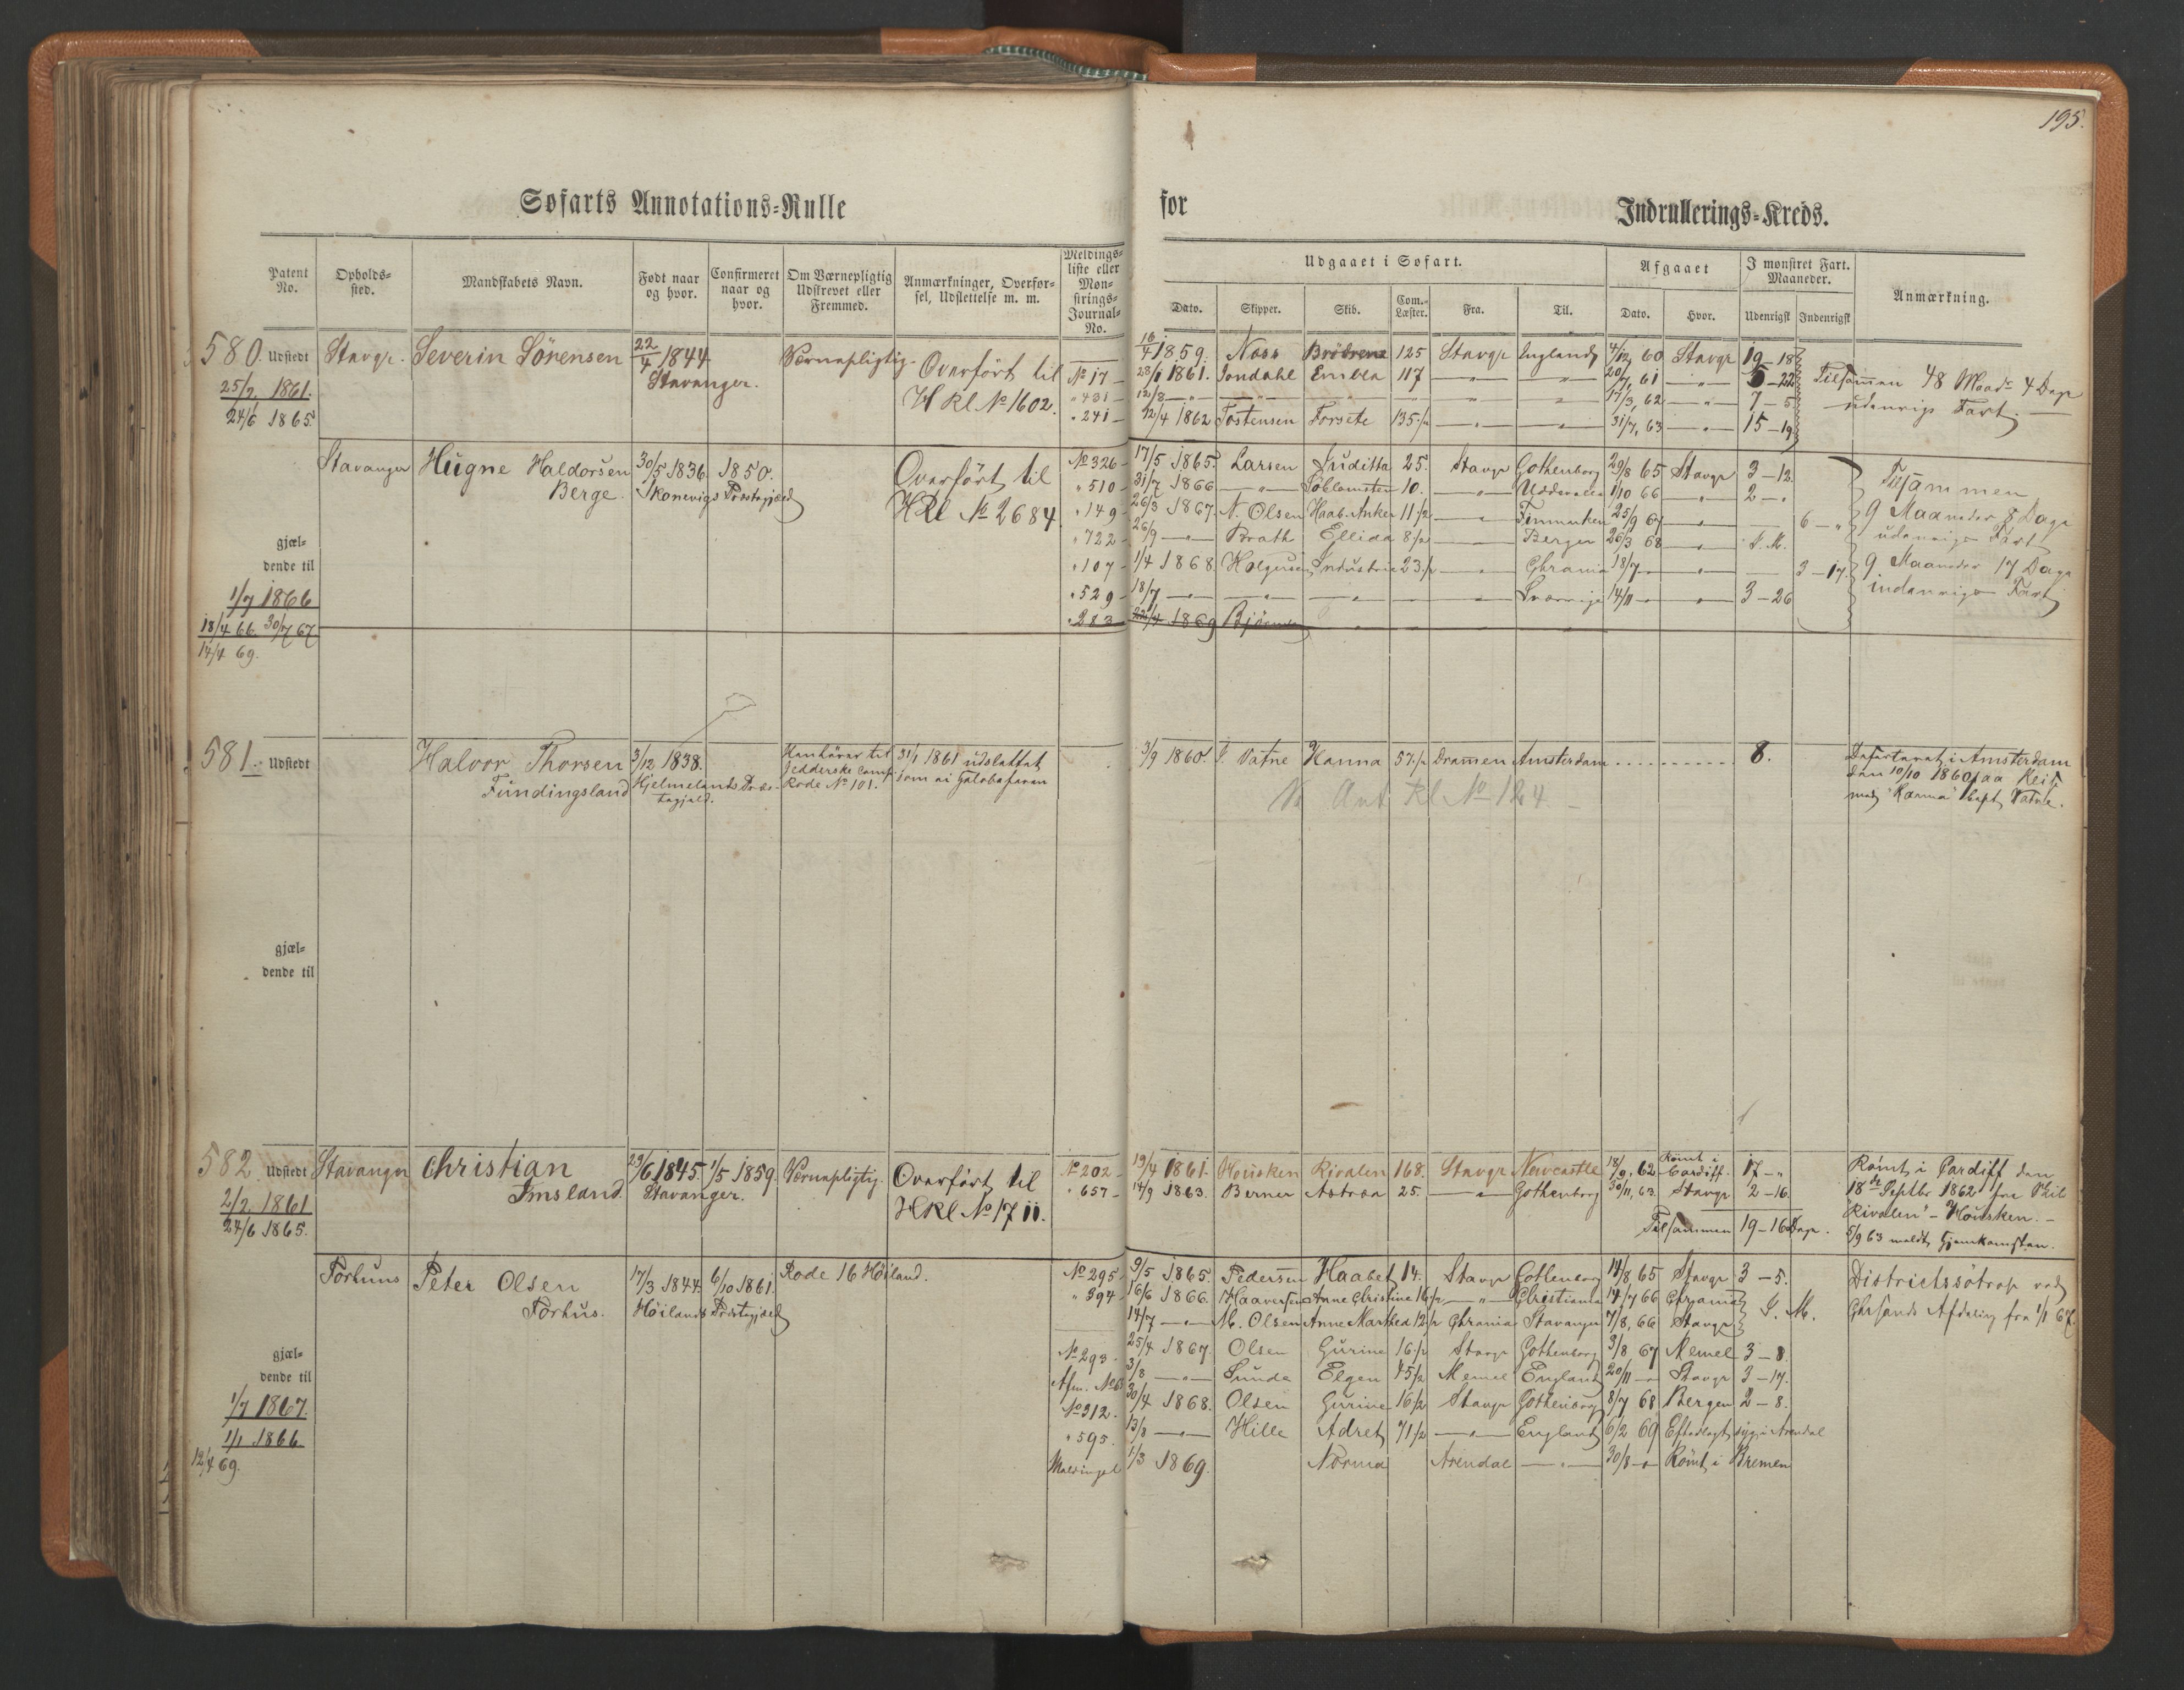 195.
Søfarts Annotations-Rulle for Indrullerings-Kreds.
Patent No. Opholds-sted. Mandskabets Navn. Født naar og hvor. Confirmeret naar og hvor. Om Værnepligtig Udskrevet eller Fremmed. Anmærkninger, Overførsel, Udslettelse m. m. Meldings-liste eller Mønstrings-Journal-No.
Udgaaet i Søfart. Afgaaet I mønstret Fart. Maaneder. Anmærkning.
Dato. Skipper. Skib. Com.-Læster. Fra. Til. Dato. Hvor. Udenrigsk Indenrigsk
580. Udstedt Stavgr. Severin Sörensen 22/4 1844 Stavanger. Værnepligtig. Overført til
H Rl No 1602.
25/2 1861.
24/6 1865.
No 17 16/4 1859. Næss Brödrene 125 Stavgr England 4/12 60 Stavgr 19-18
" 431 23/1 1861. Jondahl Embla 117 — " — — " — 20/7 61 — " — 5-22
12/8 — " — 17/3 62 — " — 7-5
" 241 12/4 1862 Tostensen Forsete 135 31/7 63 — " — 15-19
Tilsammen 48 Maadr 4 Dage
udenrigs Fart.
Stavanger Hugne Haldorsen 30/5 1836. 1850. Overført til
Berge. Skonevigs Præstegjeld HRl No 2684
No 326 17/5 1865. Larsen Juditta 25. Stavgr Gothenborg 29/8 65 Stavgr 3-12.
" 510 31/7 1866 — " — Soblomsten 10. — " — Uddevalla 1/10 66 — " — 2 - "
" 149 26/3 1867. N. Olsen Haab. Anker 11½ Finmarken 25/9 67 — " — 6 - "
" 722 26/9 — " — Brath Ellida 8½ Bergen 26/3 68 — " — I. M.
" 107 1/4 1868 Holgersen Industrie 23½ Chrania 18/7 — " — 3-17.
" 529 18/7 — " — Sverrige 14/11 — " — 3-26
" 283 22/4 1869
Tilsammen
9 Maaneder 8 Dage
udenrigs Fart
9 Maaneder 17 Dage
indenrigs Fart
gjældende til
1/7 1866
18/4 66. 30/7 67
14/4 69.
581. Udstedt Halvor Thorsen 3/12 1838. Han hører til 31/1 1861 udslettet
Fundingsland Hjelmelands Præstegjeld. Jedderske Comp. som ei
Rode No 101.
3/9 1860. Vatne Hanna 57½ Drammen Amsterdam 8.
Rl No 124
Deserteret i Amsterdam
den 10/10 1860 paa Reise
med "Hanna" Capt Vatne.
gjældende til
582. Udstedt Stavanger Christian 29/6 1845. 1/5 1859. Værnepligtig. Overført til
Imsland. Stavanger. HRl No 1711.
2/2 1861
24/6 1865.
No 202 19/4 1861. Housken Rivalen 168. Stavgr Newcastle 18/9, 62 Rømt i Cardiff. 17 - "
" 657 14/9 1863. Berner Astræa 25. — " — Gothenborg 30/11, 63. Stavgr 2-16.
Tilsammen 19-16 Dage.
Rømt i Cardiff den
18de Septbr 1862 fra Skib
"Rivalen" - Housken. -
5/9 63 meldt Hjemkomsten.
Torhuns Peter Olsen 17/3 1844. 6/10 1861. Rode 16 Høiland.
Torhus. Høilands Præstegjeld
No 295 9/5 1865. Pedersen Haabet 14. Stavgr Gothenborg 14/8 65 Stavgr 3-5.
" 394 16/6 1866. Haaversen Anne Christine 16½ — " — Christiania 14/7 66 Chrania I. M.
14/7 — " — M. Olsen Anne Marthea 12½ Chrania Stavanger 7/8, 66 Stavgr
No 293. 25/4 1867. Olsen Gurine 16½ Stavgr Gothenborg 3/8 67 Memel 3-8.
3/8 — " — Sunde Elgen 45½ Memel England 20/11 — " — Stavgr 3-17.
No 312. 30/4 1868. Olsen Gurine 16½ Stavgr Gothenborg 8/7 68 Bergen 2-8.
" 595. 13/8 — " — Hille Adret 71½ — " — England 6/2 69 Efterlagt syg i Arendal
1/3 1869. Norma Arendal — " — 30/8 — " — Rømt i Bremen
ved
Chrsands Afdeling fra 1/1 67.
gjældende til
1/7 1867.
1/1 1866.
12/4 69.